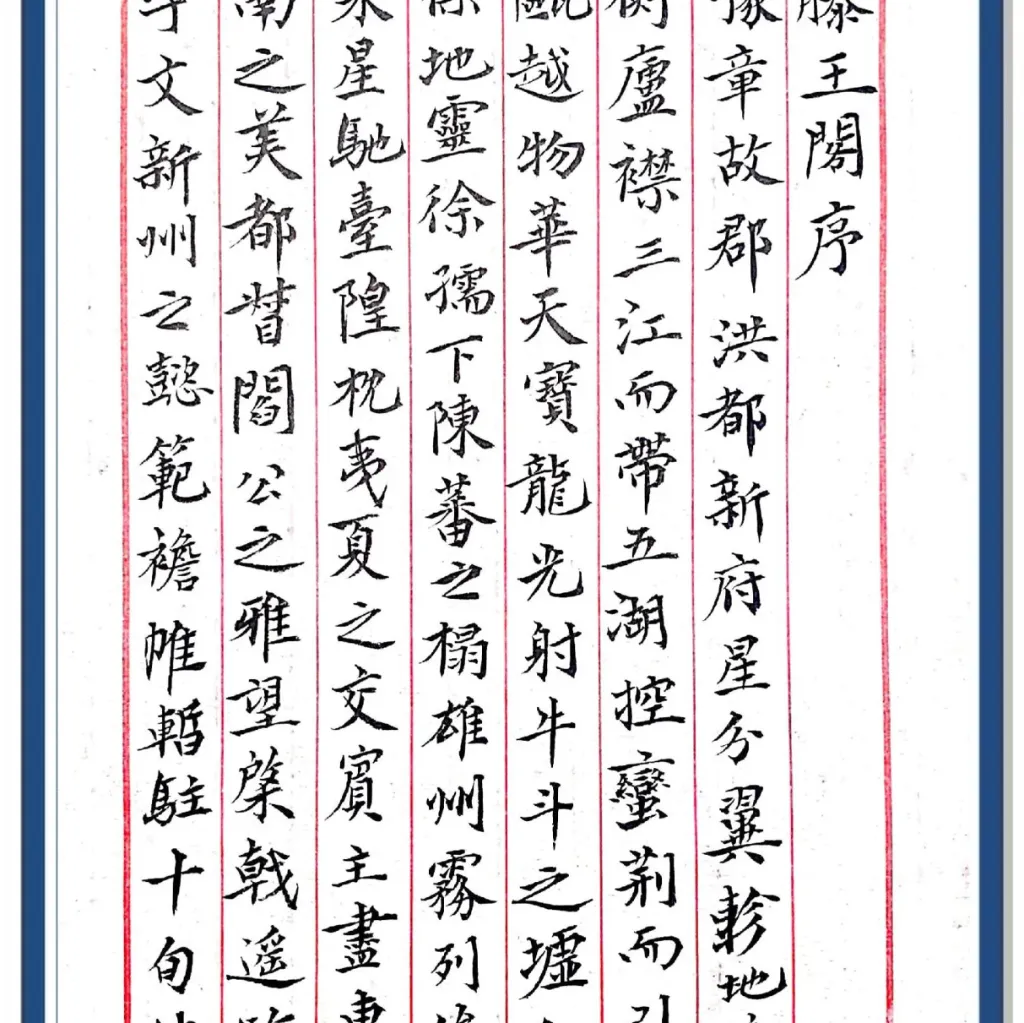 滕王閣序
豫章故郡洪都新府星分翼軫地
衡廬襟三江而帶五湖控蠻荊而引
甌越物華天寶龍光射牛斗之墟
傑地靈徐孺下陳蕃之榻雄州霧列
采星馳臺隍枕夷夏之交賓主盡東
南之美都督閻公之雅望棨戟遥
宇文新州之懿範襜帷暫駐十旬